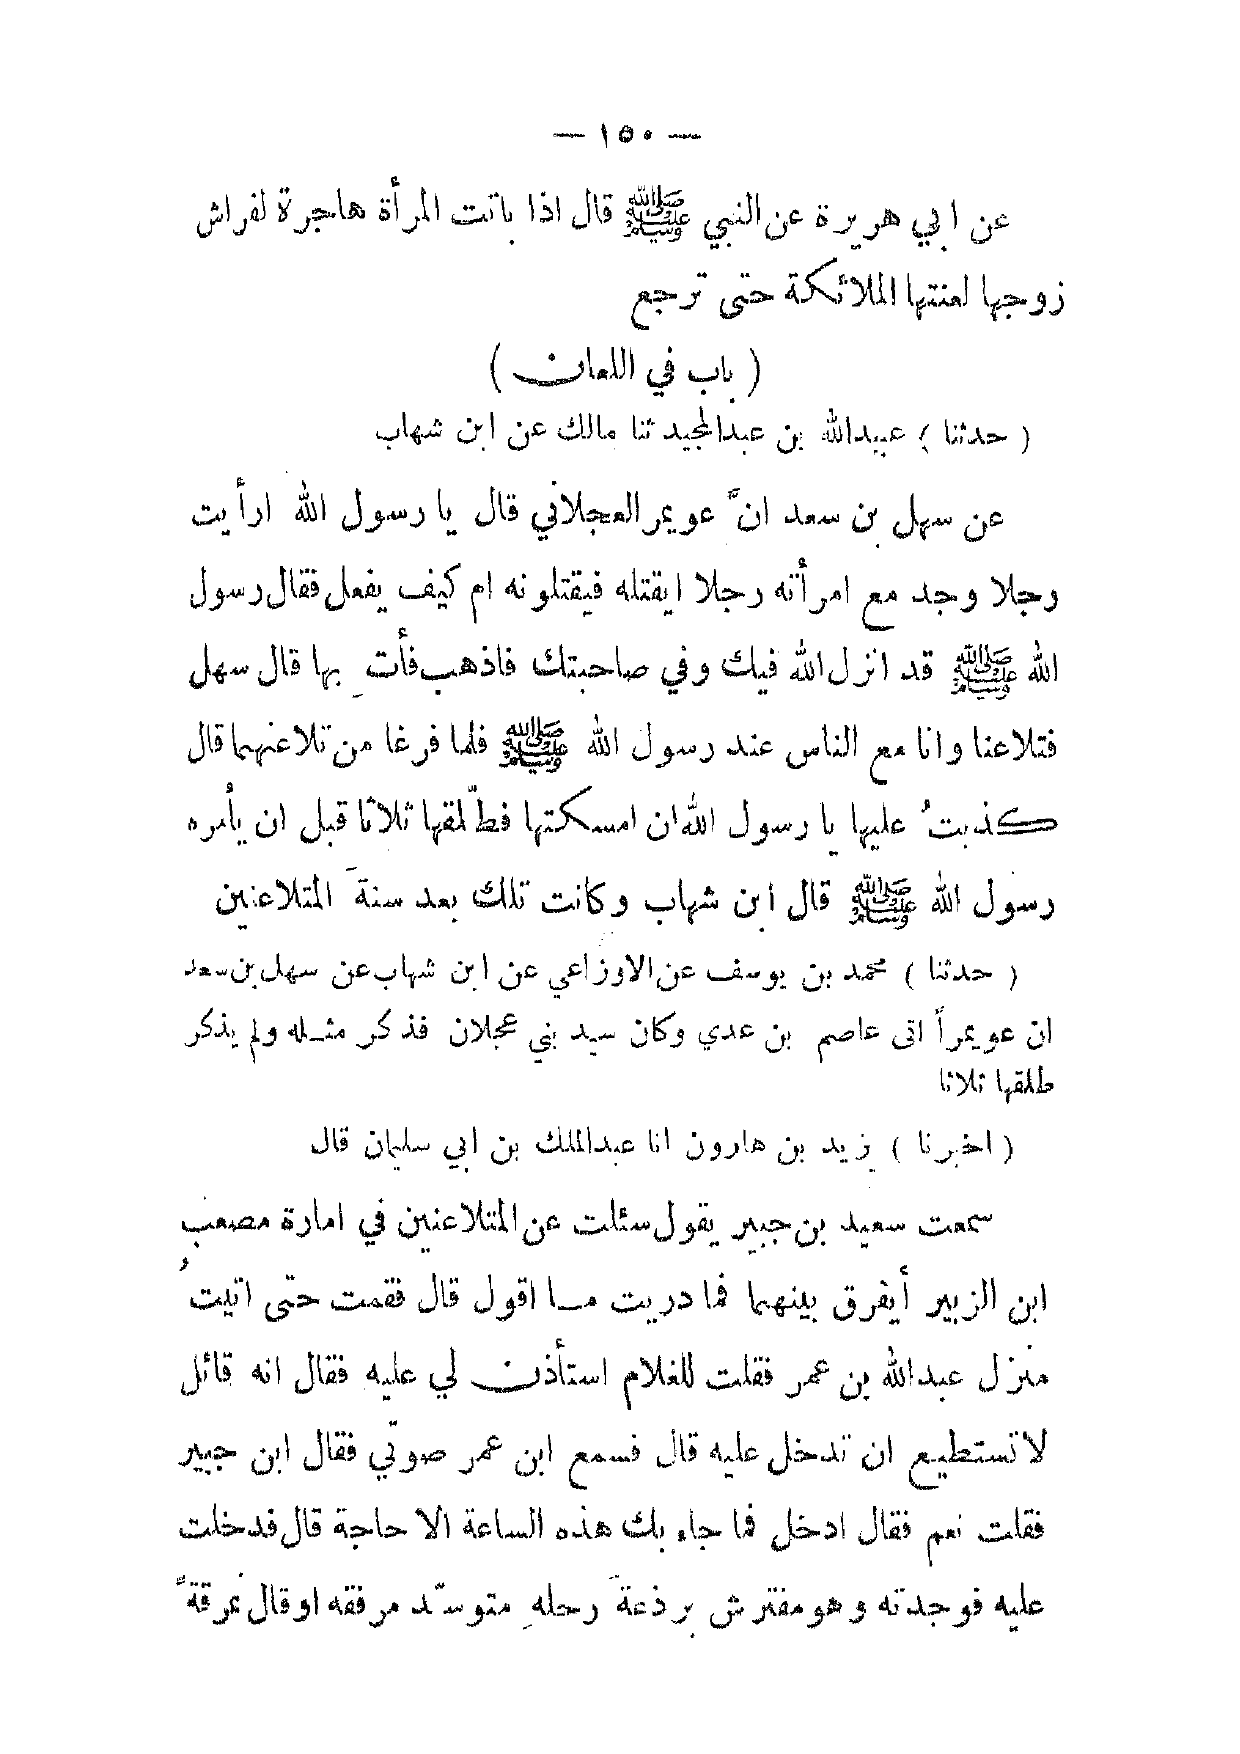 — ١٥٠ —
عن ابي هريرة عن النبي ﷺ قال اذا باتت المرأة هاجرة لفراش
زوجها لعنتها الملائكة حتى ترجع
( باب في اللعان )
( حدثنا ) عبيدالله بن عبدالمجيد ثنا مالك عن ابن شهاب
عن سهل بن سعد انّ عويمر العجلاني قال يا رسول الله ارأيت
رجلا وجد مع امرأته رجلا ايقتله فيقتلونه ام كيف يفعل فقال رسول
الله ﷺ قد انزل الله فيك وفي صاحبتك فاذهب فأتِ بها قال سهل
فتلاعنا وانا مع الناس عند رسول الله ﷺ فلما فرغا من تلاعنهما قال
كذبتُ عليها يا رسول الله ان امسكتها فطلّقها ثلاثا قبل ان يأمره
رسول الله ﷺ قال ابن شهاب وكانت تلك بعد سنةَ المتلاعنين
( حدثنا ) محمد بن يوسف عن الاوزاعي عن ابن شهاب عن سهل بن سعد
ان عويمراً اتى عاصم بن عدي وكان سيد بني عجلان فذكر مثله ولم يذكر
طلقها ثلاثا
( اخبرنا ) يزيد بن هارون انا عبدالملك بن ابي سليمان قال
سمعت سعيد بن جبير يقول سئلت عن المتلاعنين في امارة مصعب
ابن الزبير أيفرق بينهما فما دريت ما اقول قال فقمت حتى اتيتُ
منزل عبدالله بن عمر فقلت للغلام استأذن لي عليه فقال انه قائل
لا تستطيع ان تدخل عليه قال فسمع ابن عمر صوتي فقال ابن جبير
فقلت نعم فقال ادخل فما جاء بك هذه الساعة الا حاجة قال فدخلت
عليه فوجدته وهو مفترش برذعةَ رحلهِ متوسّد مرفقه او قال نمرقةً